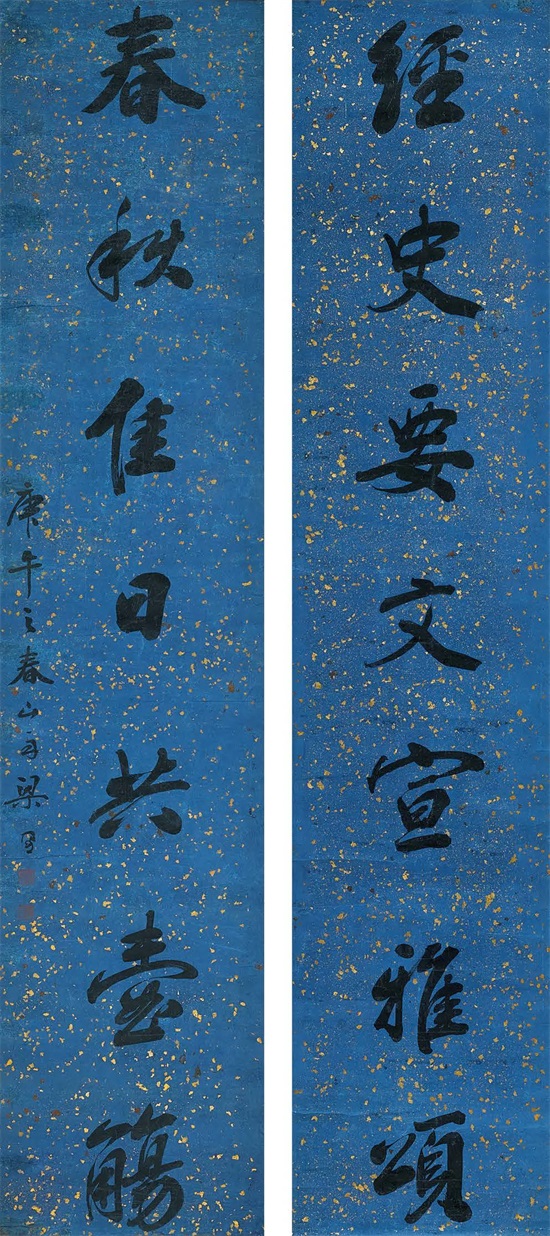 經史要文宣雅頌
春秋佳日共壺觴
庚午之春山舟梁同